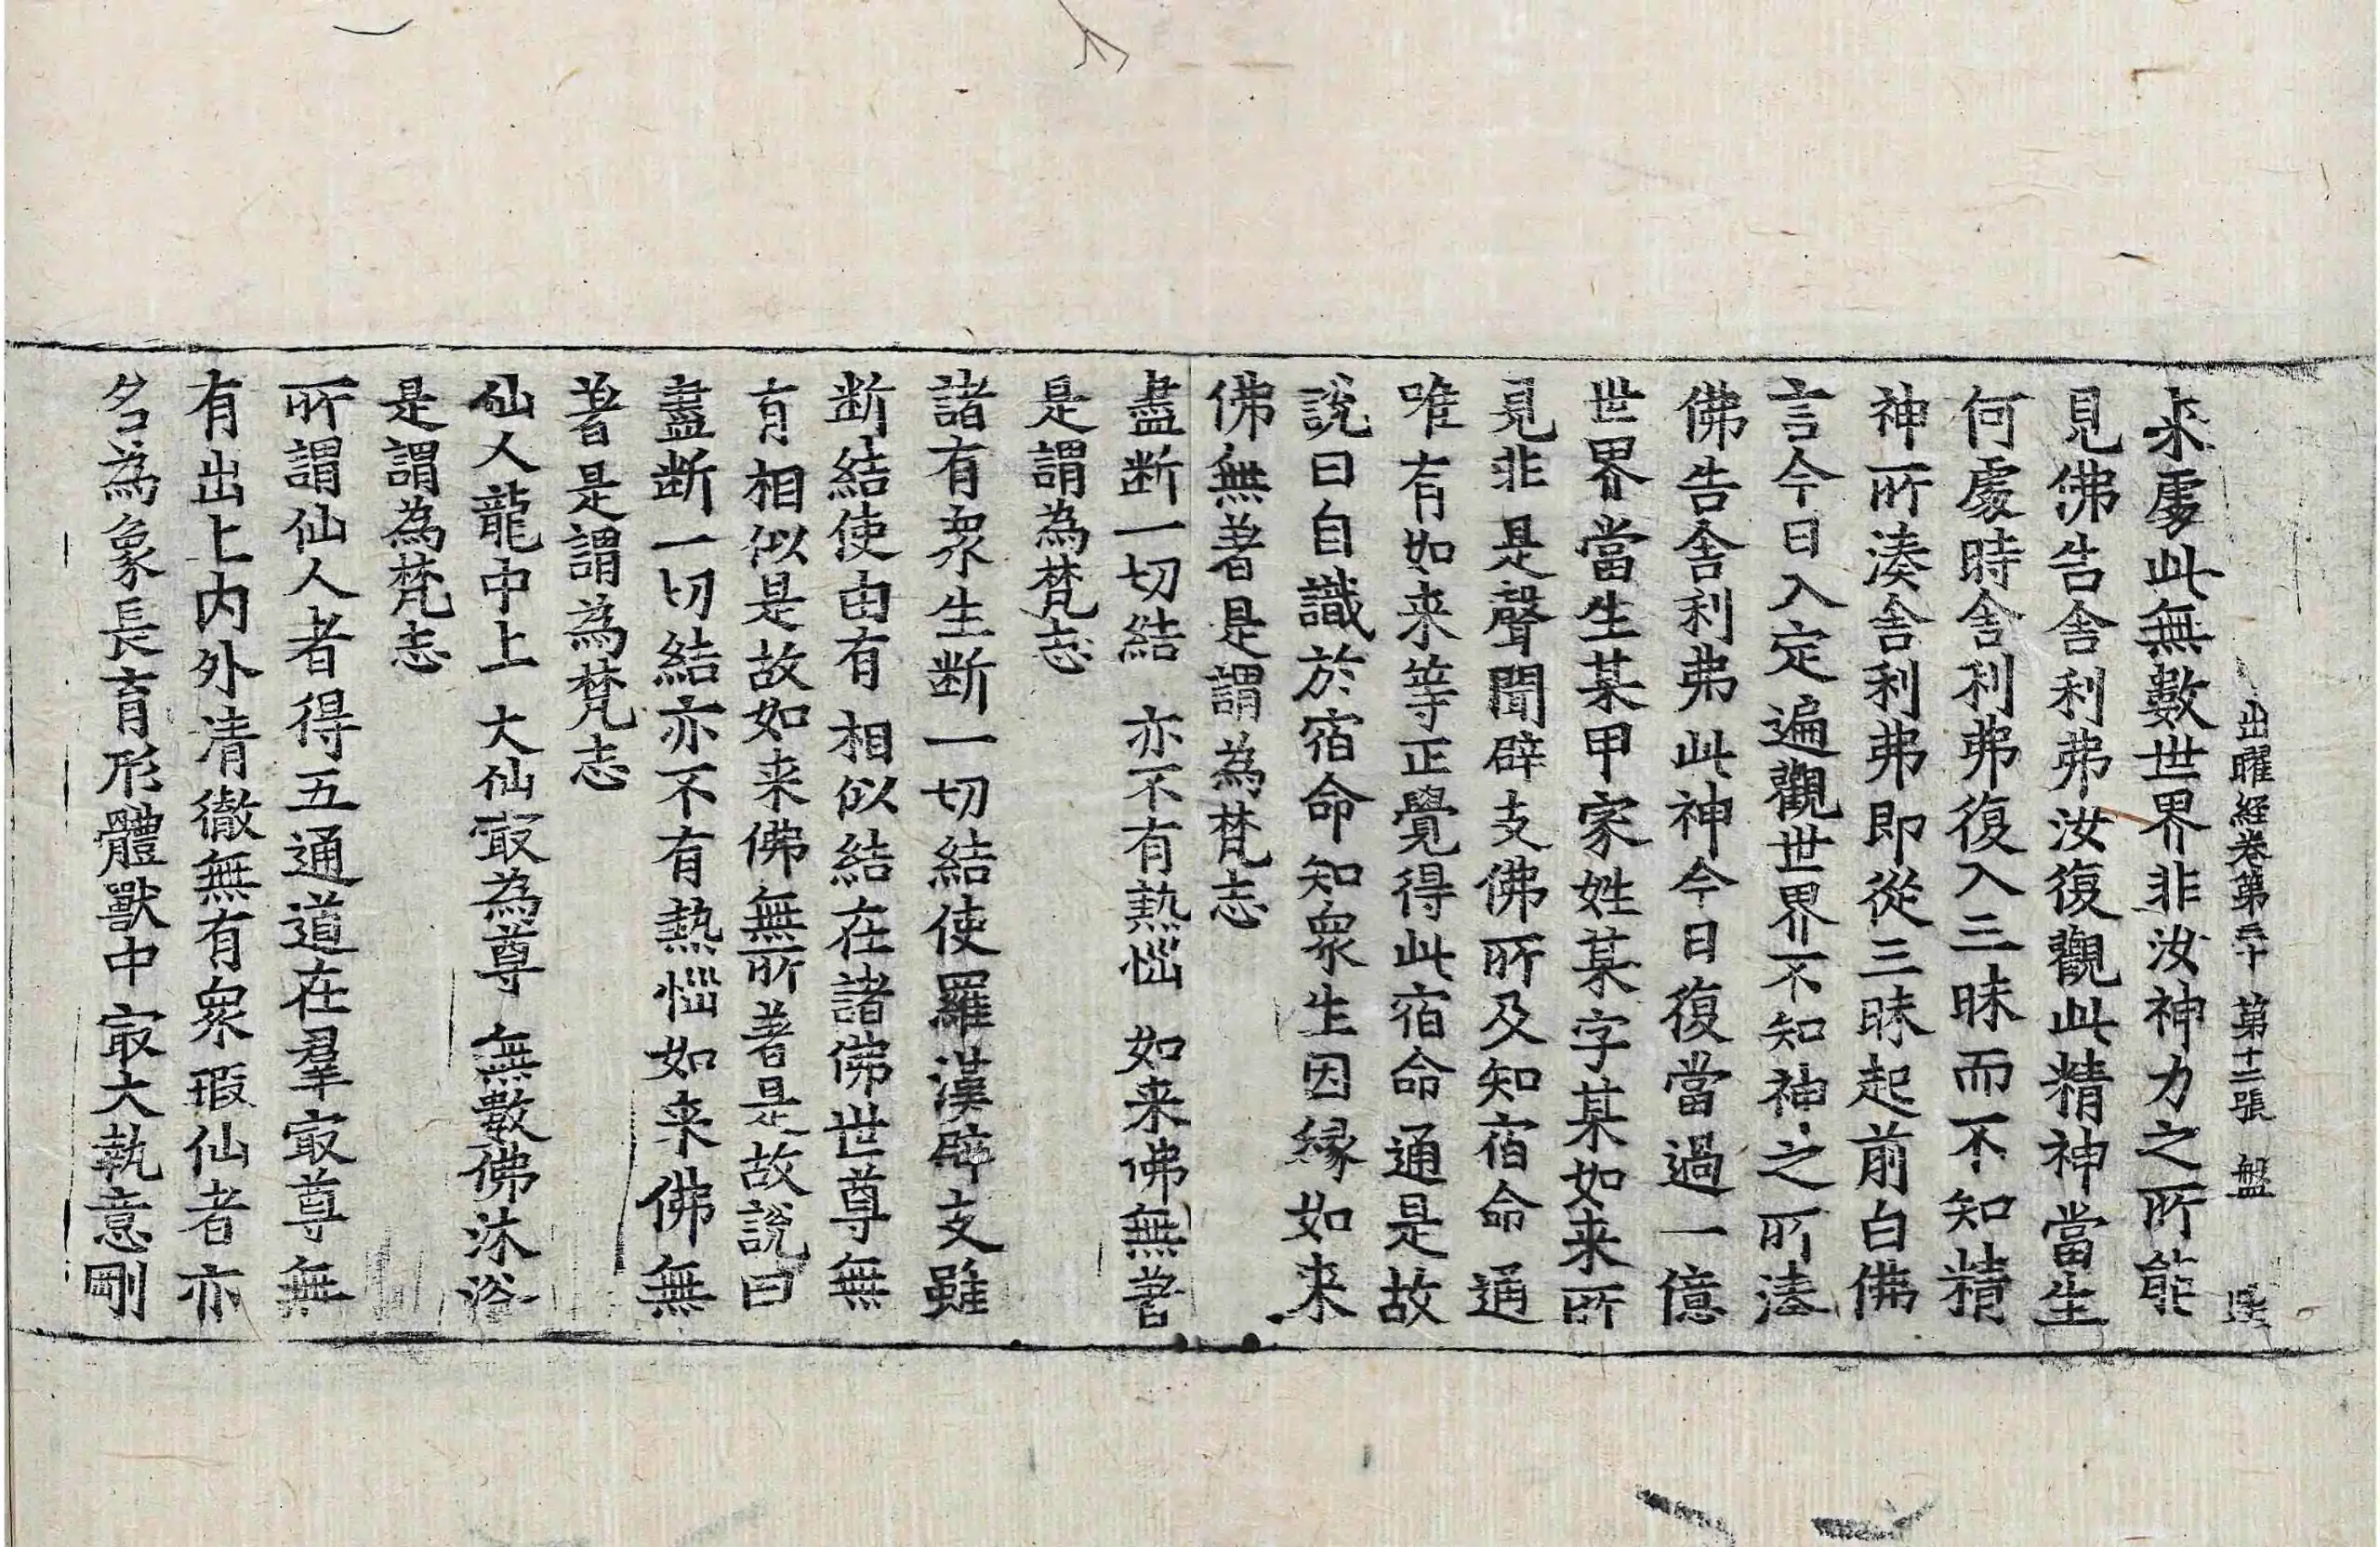 出曜経卷第三十 第十二張 盤
来處此無數世界非汝神力之所能
見佛告舎利弗汝復觀此精神當生
何處時舎利弗復入三昧而不知精
神所湊舎利弗即從三昧起前白佛
言今日入定遍觀世界不知神之所湊
佛告舎利弗此神今日復當過一億
世界當生某甲家姓某字某如来所
見非是聲聞辟支佛所及知宿命通
唯有如来等正覺得此宿命通是故
說曰自識於宿命知衆生因縁如来
佛無著是謂為梵志
盡断一切結 亦不有熱惱 如来佛無著
是謂為梵志
諸有衆生断一切結使羅漢辟支雖
断結使由有相似結在諸佛世尊無
有相似是故如来佛無所著是故說曰
盡断一切結亦不有熱惱如来佛無
著是謂為梵志
仙人龍中上 大仙㝡為尊 無數佛沐浴
是謂為梵志
所謂仙人者得五通道在羣㝡尊無
有出上内外清徹無有衆瑕仙者亦
名為象長育形體獸中㝡大執意剛